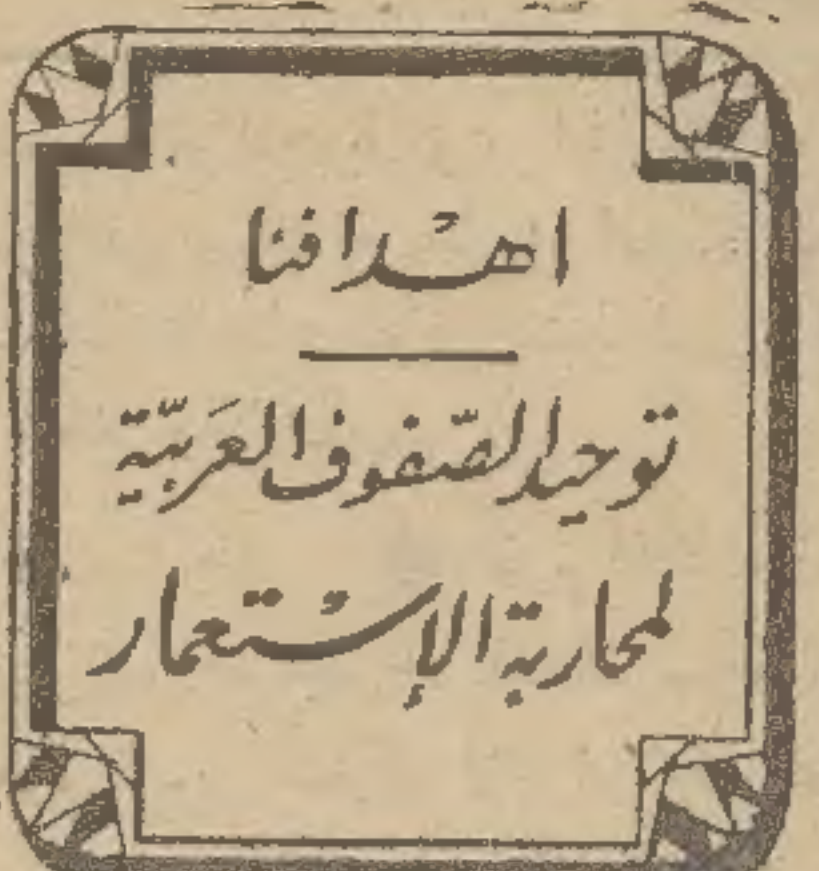 اهدافنا
توحيد الصّفوف العَربيّة
لمحاربة الإستعمار